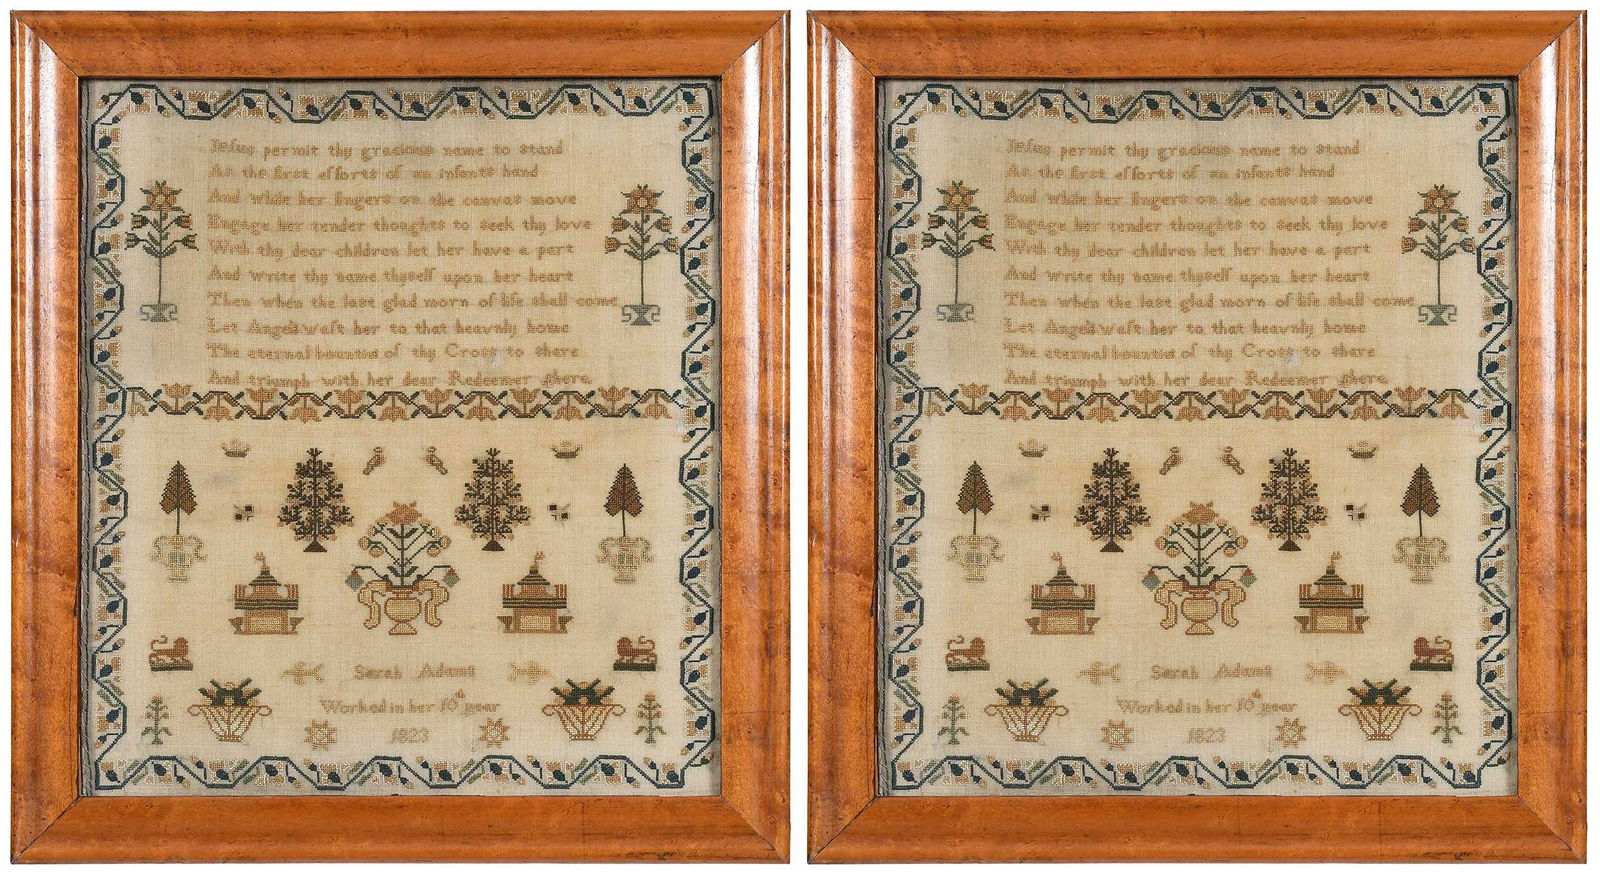 Jesus permit thy gracious name to stand
As the first efforts of an infants hand
And while her fingers on the canvas move
Engage her tender thoughts to seek thy love
With thy dear children let her have a part
And write thy name thyself upon her heart
Then when the last glad morn of life shall come
Let Angels waft her to that heavnly home
The eternal bounties of thy Cross to share
And triumph with her dear Redeemer there
Sarah Adams
Worked in her 10th year
1823
Jesus permit thy gracious name to stand
As the first efforts of an infants hand
And while her fingers on the canvas move
Engage her tender thoughts to seek thy love
With thy dear children let her have a part
And write thy name thyself upon her heart
Then when the last glad morn of life shall come
Let Angels waft her to that heavnly home
The eternal bounties of thy Cross to share
And triumph with her dear Redeemer there
Sarah Adams
Worked in her 10th year
1823